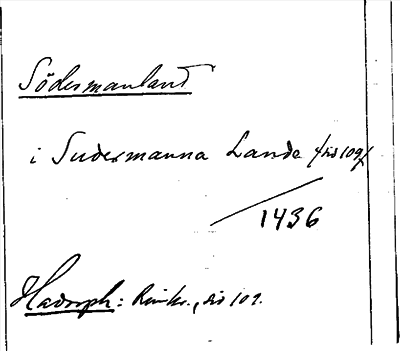 Södermanland
i Sudermanna Lande /sid 109/
1436
Hadorph: Rimkr., sid 109.